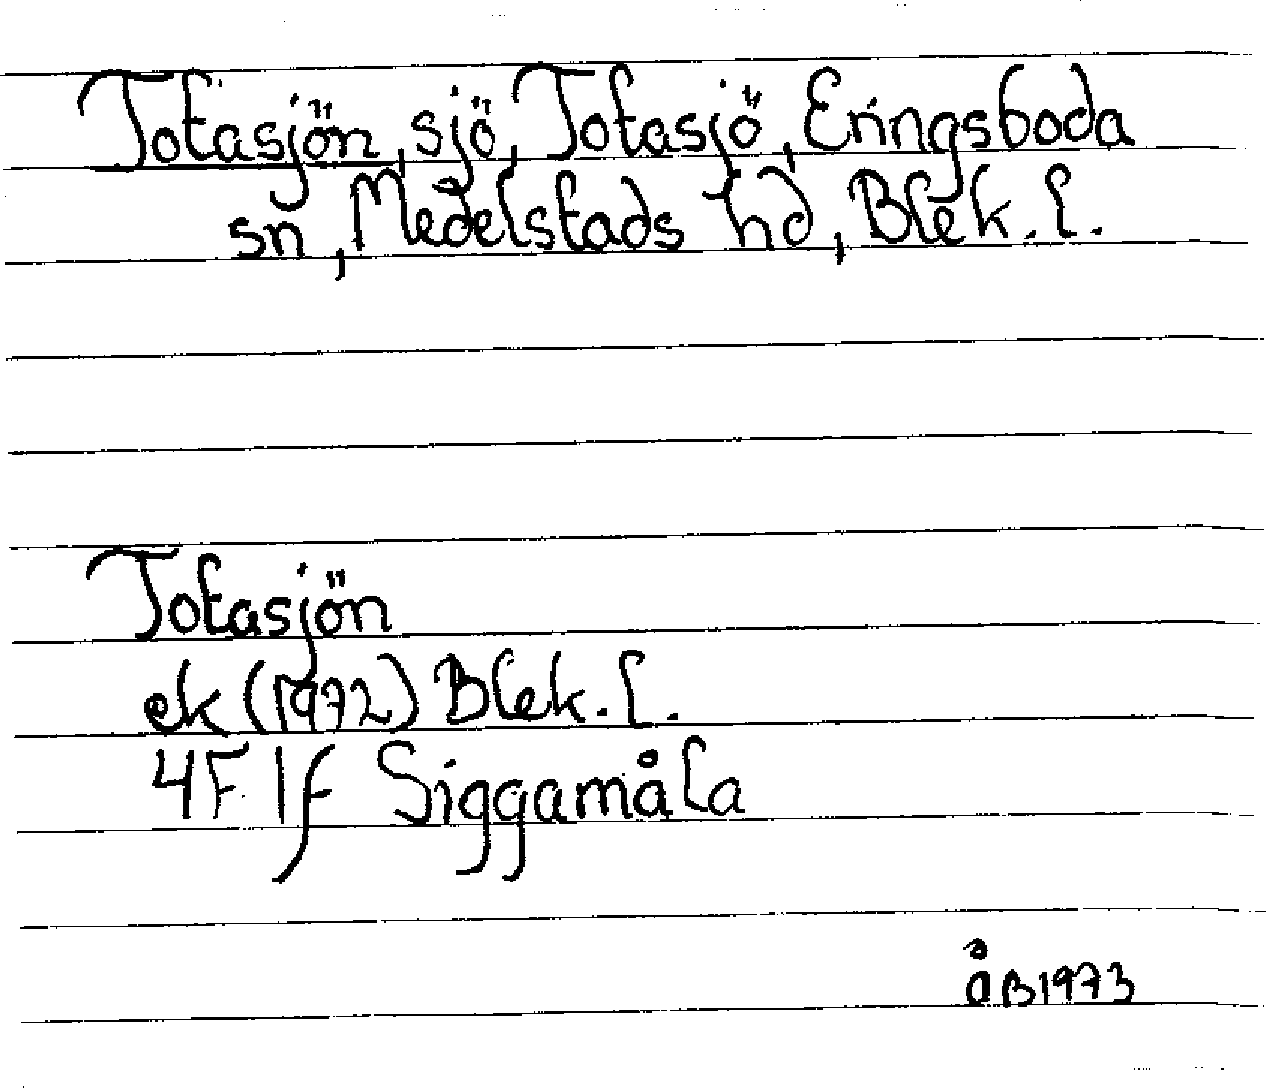 Totasjön, sjö, Totasjö, Eringsboda
sn, Medelstads hd, Blek. l.
Totasjön
ek (1972) Blek. l.
4F 1f Siggamåla
åB 1973